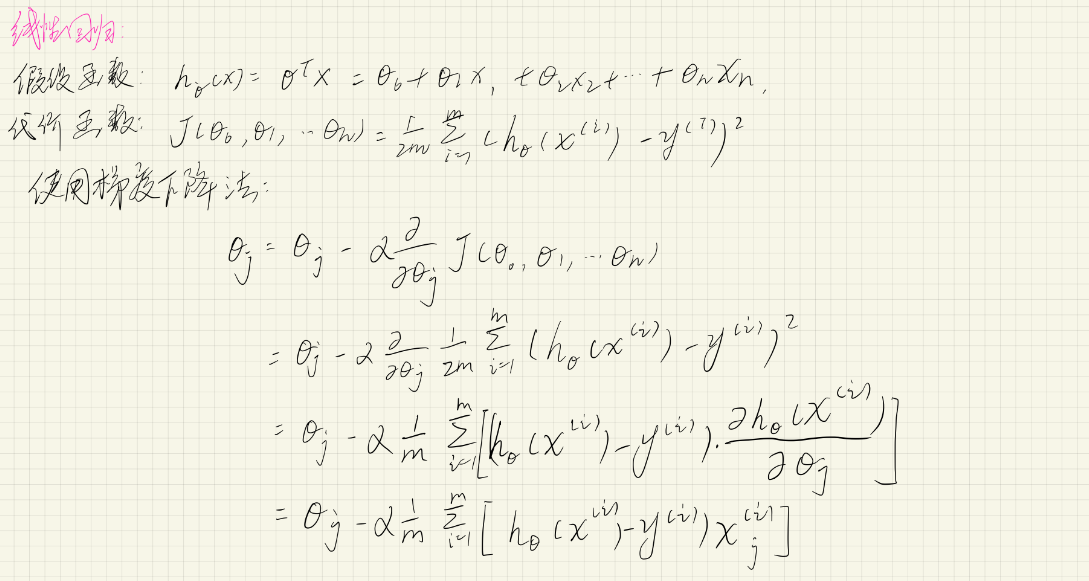 线性回归:
假设函数: h_θ(x) = θ^T x = θ_0 + θ_1 x_1 + θ_2 x_2 + ⋯ + θ_n x_n.
代价函数: J(θ_0, θ_1, ⋯ θ_n) = \frac{1}{2m} \sum_{i=1}^{m} (h_θ(x^{(i)}) - y^{(i)})^2
使用梯度下降法:
θ_j = θ_j - α \frac{∂}{∂θ_j} J(θ_0, θ_1, ⋯ θ_n)
= θ_j - α \frac{∂}{∂θ_j} \frac{1}{2m} \sum_{i=1}^{m} (h_θ(x^{(i)}) - y^{(i)})^2
= θ_j - α \frac{1}{m} \sum_{i=1}^{m} [(h_θ(x^{(i)}) - y^{(i)}) · \frac{∂h_θ(x^{(i)})}{∂θ_j}]
= θ_j - α \frac{1}{m} \sum_{i=1}^{m} [h_θ(x^{(i)}) - y^{(i)}) x_j^{(i)}]